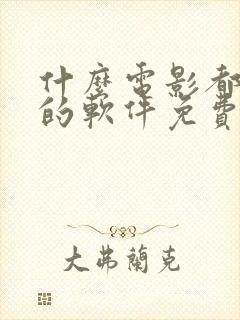 什麼電影都
的軟件免費
大弗蘭克